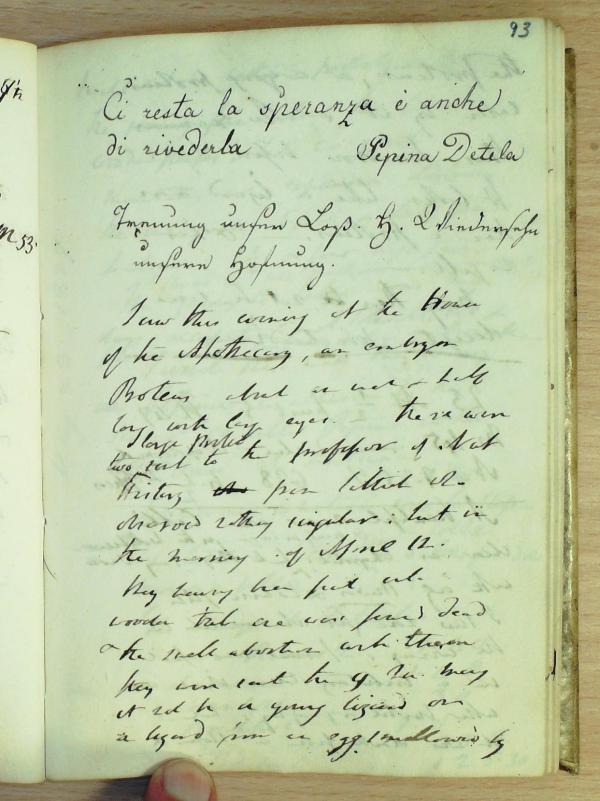 93
Ci resta la speranza è anche
di rivederla Pepina Detela
Trennung unser Loß. H. Wiedersehn
unsere Hoffnung.
Saw this evening at the House
of the Apothecary, an embryon
Proteus about an inch & half
long with large eyes. there were
two large Protei sent to the professor of Nat
History from Sittich He
observed nothing singular; but in
the morning of April 12.
they having been put into
wooden tub one was found dead
& the small abortion with them
they were sent the 9 Jan. may
it not be a young lizard or
a lizard from an egg swallowed by
m 53.